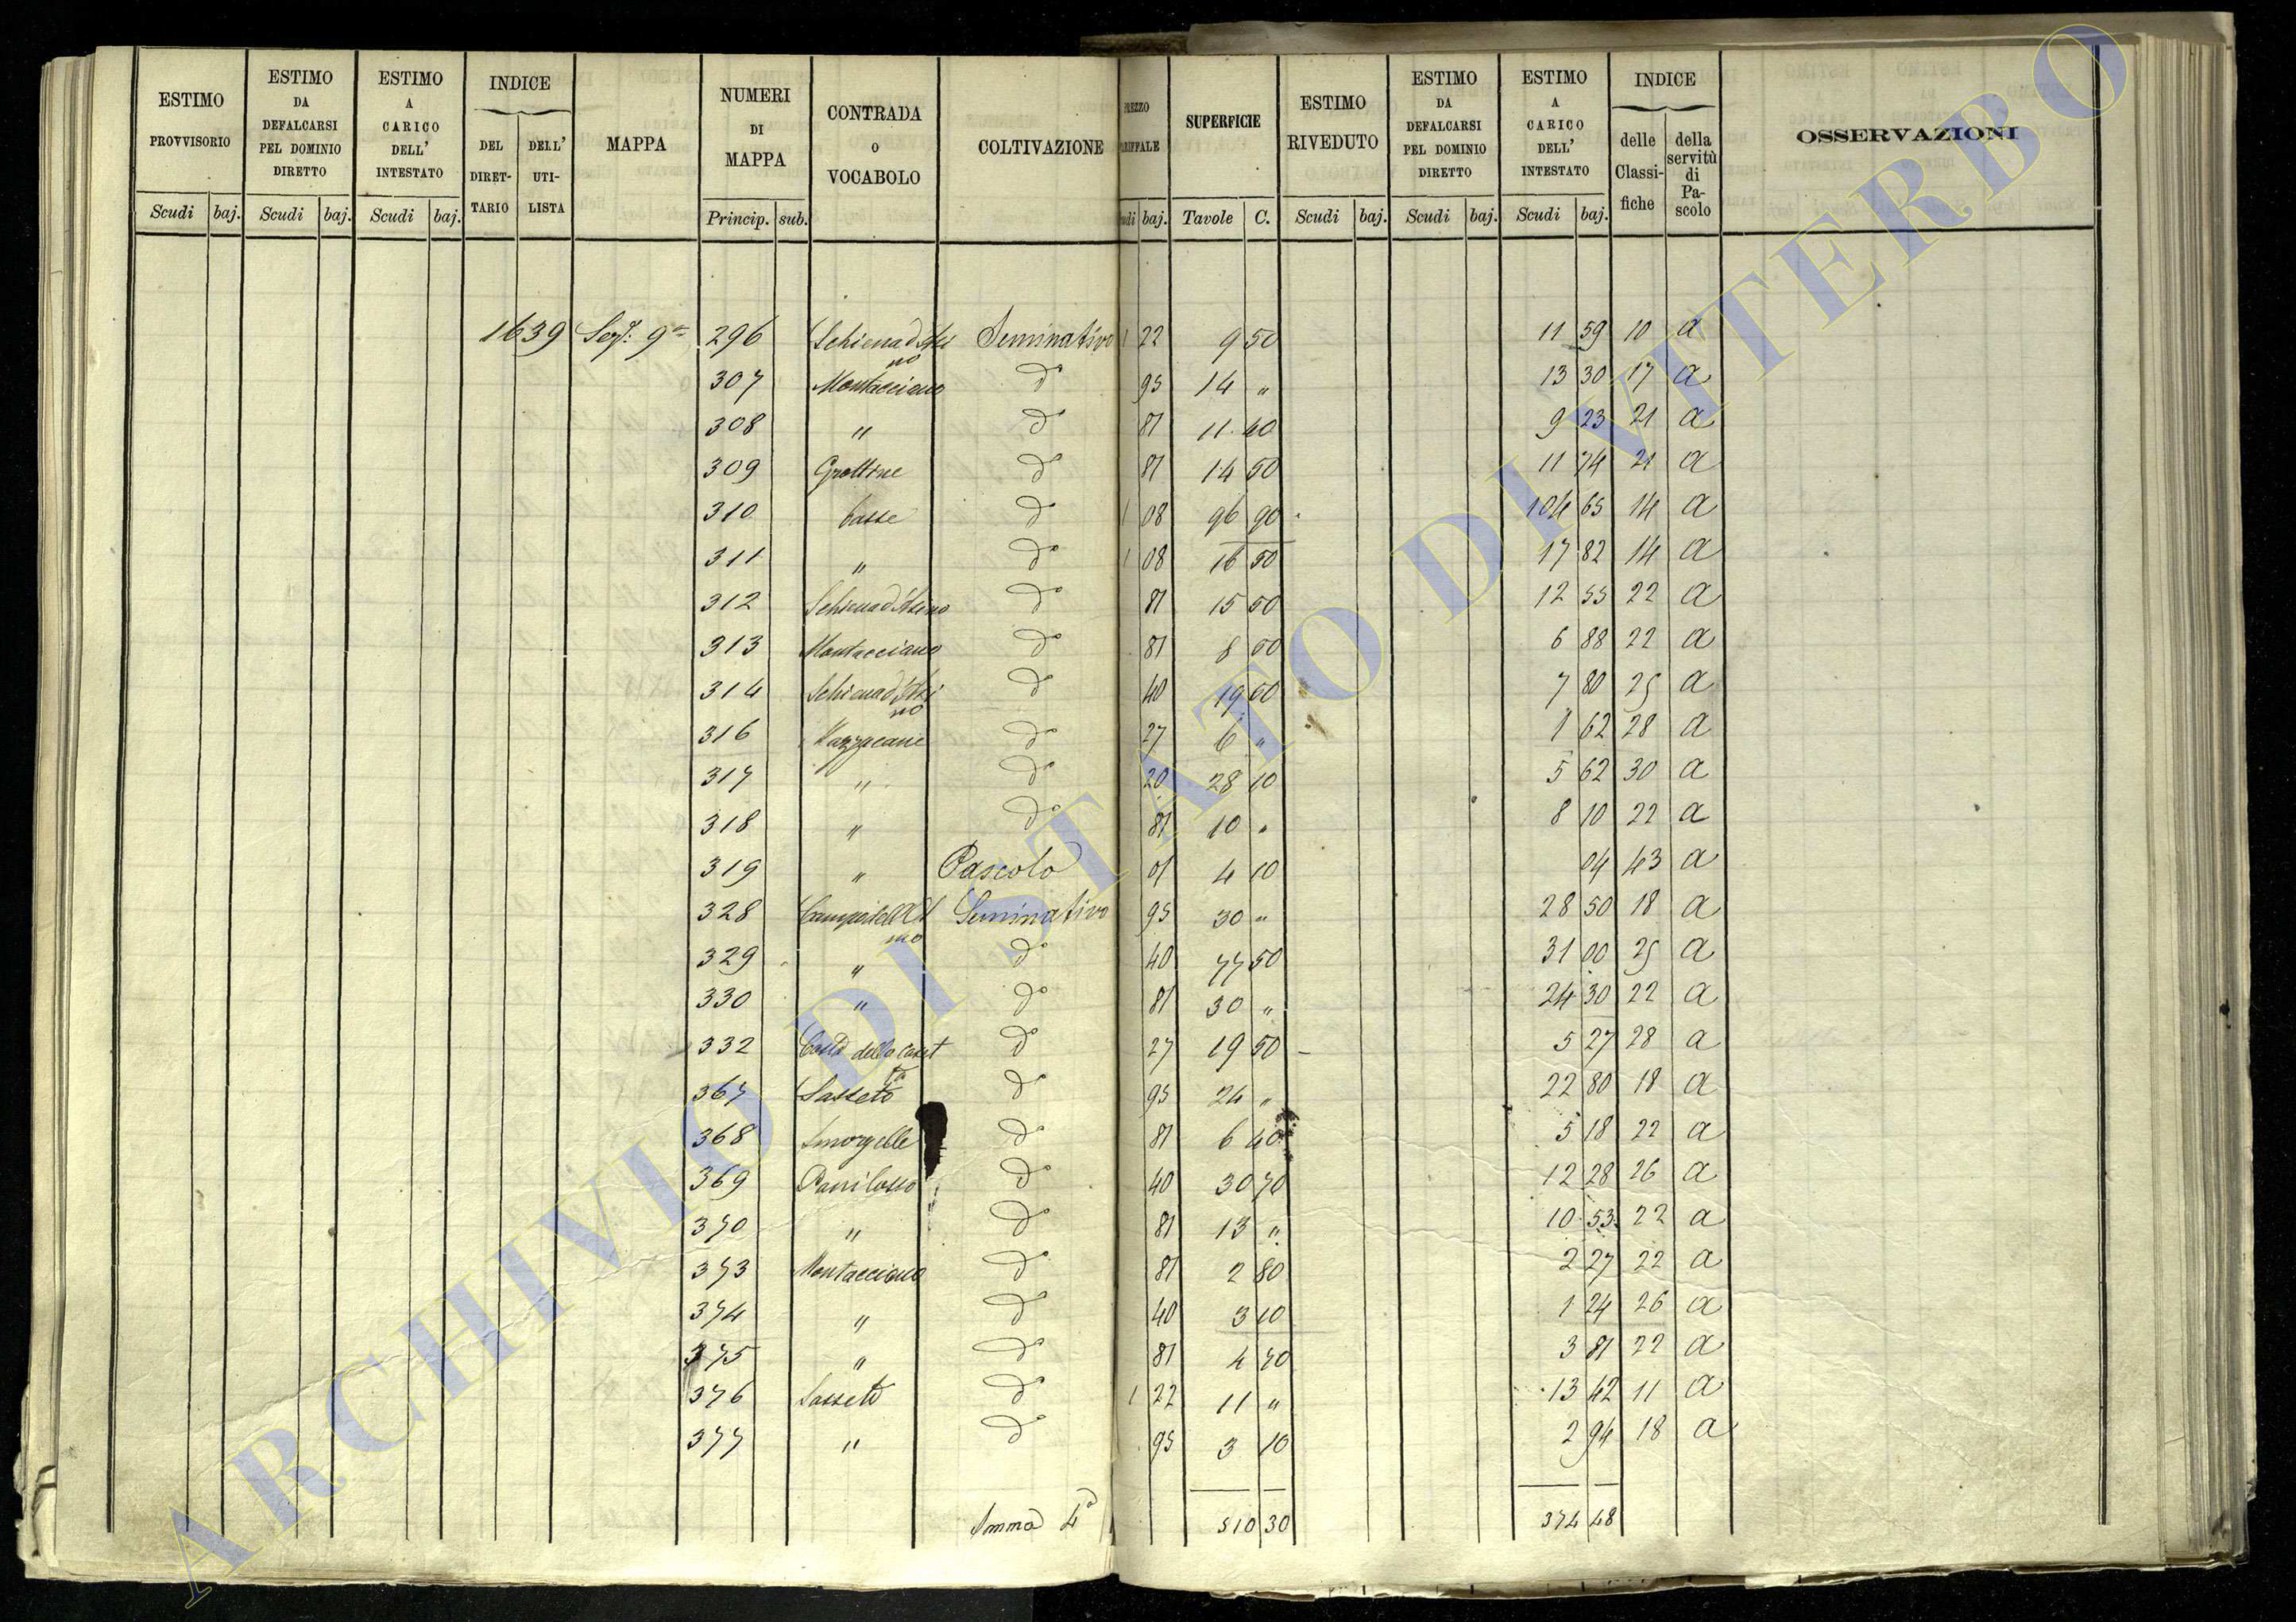 ESTIMO PROVVISORIO Scudi baj.
ESTIMO DA DEFALCARSI PEL DOMINIO DIRETTO Scudi baj.
ESTIMO A CARICO DELL' INTESTATO Scudi baj.
INDICE DEL DIRET-TARIO DELL' UTI-LISTA
MAPPA
NUMERI DI MAPPA Princip. sub.
CONTRADA o VOCABOLO
COLTIVAZIONE
baj.
SUPERFICIE Tavole C.
ESTIMO RIVEDUTO Scudi baj.
ESTIMO DA DEFALCARSI PEL DOMINIO DIRETTO Scudi baj.
ESTIMO A CARICO DELL' INTESTATO Scudi baj.
INDICE delle Classi-fiche della servitù di Pa-scolo
OSSERVAZIONI
1639 Sez. 9a 296 Schiena d'Asino Seminativo 1 22 9 50 11 59 10 a
307 Montacciano do 95 14 " 13 30 17 a
308 " do 81 11 40 9 23 21 a
309 Grottine do 81 14 50 11 74 21 a
310 Casse do 1 08 96 90 104 65 14 a
311 " do 1 08 16 50 17 82 14 a
312 Schiena d'Asino do 81 15 50 12 55 22 a
313 Montacciano do 81 8 50 6 88 22 a
314 Schiena d'Asino do 40 19 50 7 80 25 a
316 Mazzacane do 27 6 " 1 62 28 a
317 " do 20 28 10 5 62 30 a
318 " do 81 10 " 8 10 22 a
319 " Pascolo 01 4 10 04 43 a
328 Seminativo 95 30 " 28 50 18 a
329 " do 40 77 50 31 00 25 a
330 " do 81 30 " 24 30 22 a
332 do 27 19 50 5 27 28 a
367 Sasseto do 95 24 " 22 80 18 a
368 do 81 6 40 5 18 22 a
369 do 40 30 70 12 28 26 a
370 " do 81 13 " 10 53 22 a
373 Montacciano do 81 2 80 2 27 22 a
374 " do 40 3 10 1 24 26 a
375 " do 81 4 70 3 81 22 a
376 Sasseto do 1 22 11 " 13 42 11 a
377 " do 95 3 10 2 94 18 a
Somma 4a 510 30 374 48
ARCHIVIO DI STATO DI VITERBO